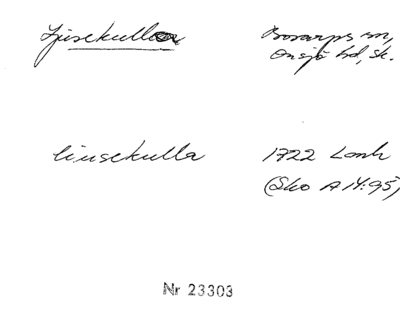 Ljusekulla Bosarps sn,
Onsjö hd, Sk.
liusekulla 1722 Lmk
(Sko A 14:95)
Nr 23303